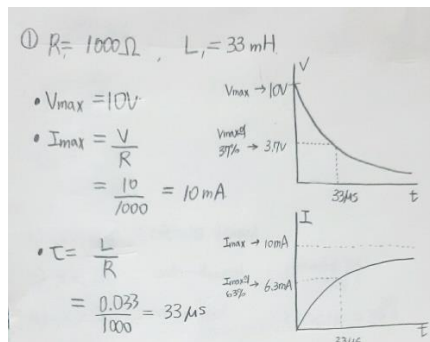 ① R₁= 1000Ω , L₁= 33 mH
• Vmax = 10V
• Imax = V/R
= 10/1000 = 10 mA
• τ = L/R
= 0.033/1000 = 33 μs
V
Vmax → 10V
Vmax의
37% → 3.7V
33μs t
I
Imax → 10mA
Imax의
63% → 6.3mA
33μs t